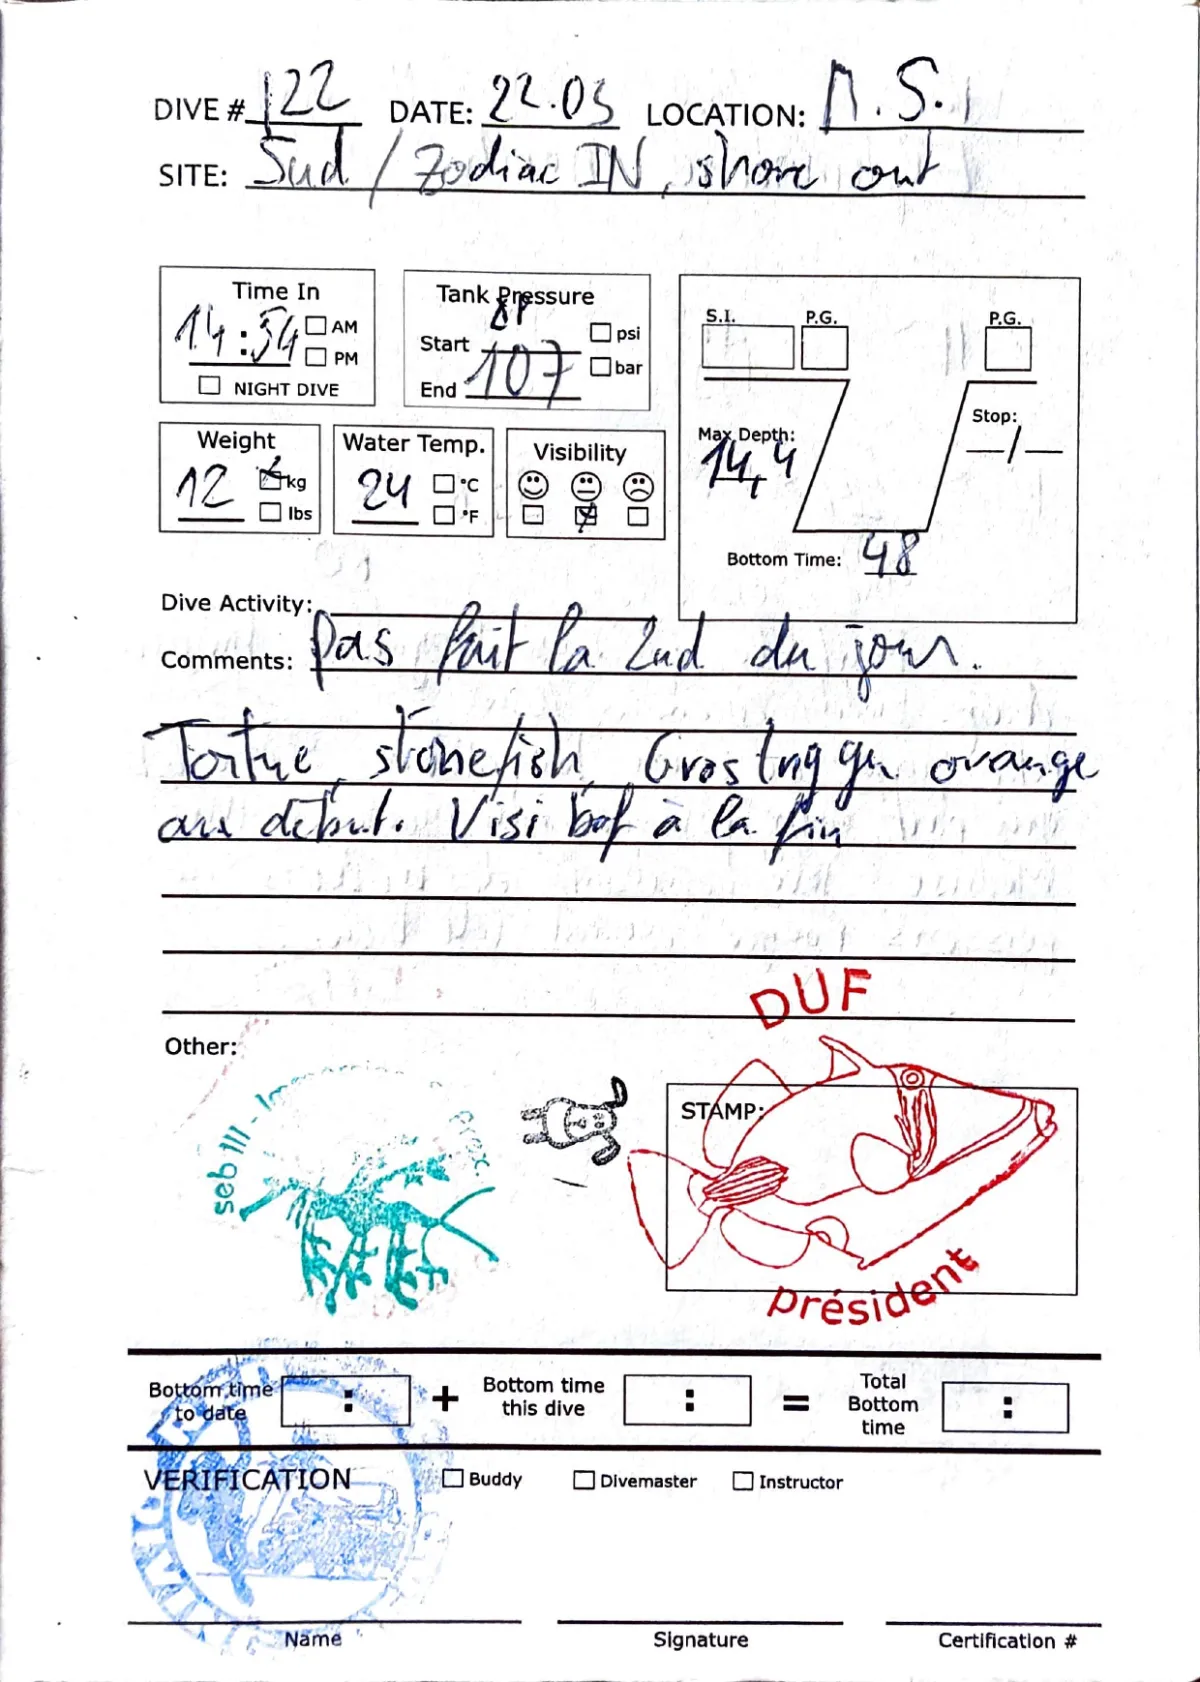 DIVE # 122 DATE: 22.03 LOCATION: M.S.
SITE: Sud / Zodiac IN, shore out
Time In
14:54 AM
PM
NIGHT DIVE
Tank Pressure
Start
psi
End 107 bar
S.I. P.G. P.G.
Max Depth:
14,4
Stop:
/
Bottom Time: 48
Weight
12 kg
lbs
Water Temp.
24 °C
°F
Visibility
Dive Activity:
Comments: Pas fait la 2nd du jour.
Tortue, stonefish, Gros trigger orange
au début. Visi bof à la fin
Other:
seb III - Immersion
DUF
STAMP:
président
Bottom time
to date
:
+
Bottom time
this dive
:
=
Total
Bottom
time
:
VERIFICATION Buddy Divemaster Instructor
Name Signature Certification #